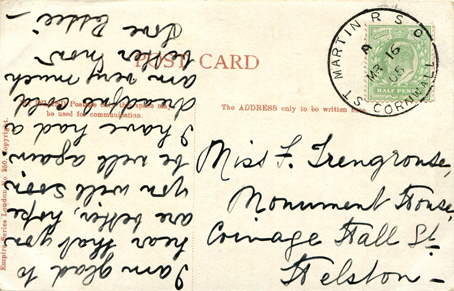 POST CARD
The ADDRESS only to be written
be used for communication.
Empire Series London No 250. Copyright.
MARTIN R.S.O.
A
16
MR
05
ST. CORNWALL
HALF PENNY
I am glad to
hear that you
are better, hope
you will soon
be well again.
I have had a
dreadful cold
am very much
better now
Love Essie —
Miss F. Trengrouse,
Monument House,
Coinage Hall St.
Helston —